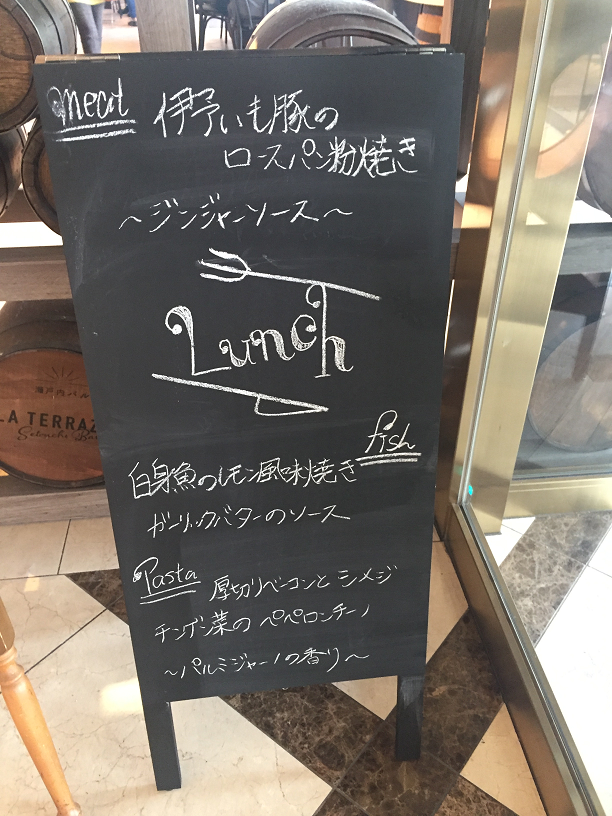 meat
伊予いも豚の
ロースパン粉焼き
～ジンジャーソース～
Lunch
fish
白身魚のレモン風味焼き
ガーリックバターのソース
Pasta 厚切りベーコンとシメジ
チンゲン菜のペペロンチーノ
～パルミジャーノの香り～
瀬戸内バル
LA TERRAZ
Setouchi Ba